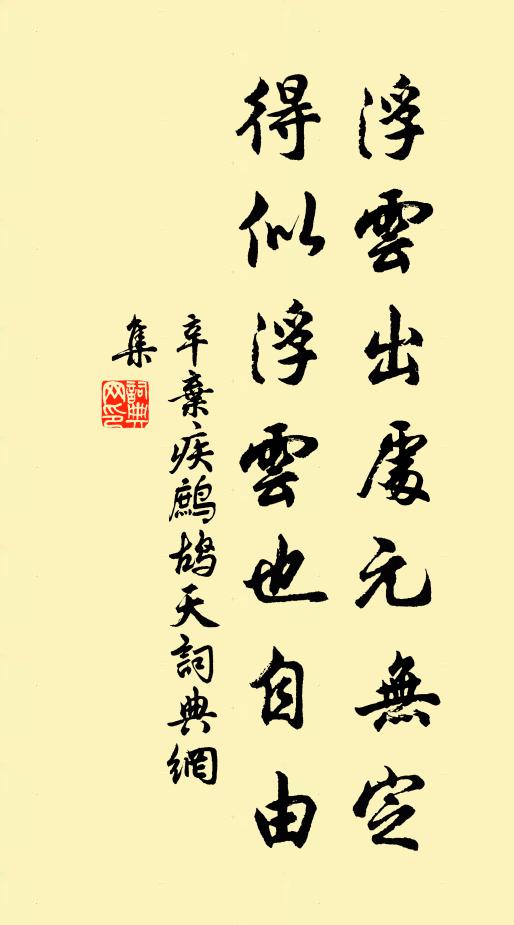 浮雲出處元無定
得似浮雲也自由
辛棄疾鷓鴣天詞典網
集
詞典網印